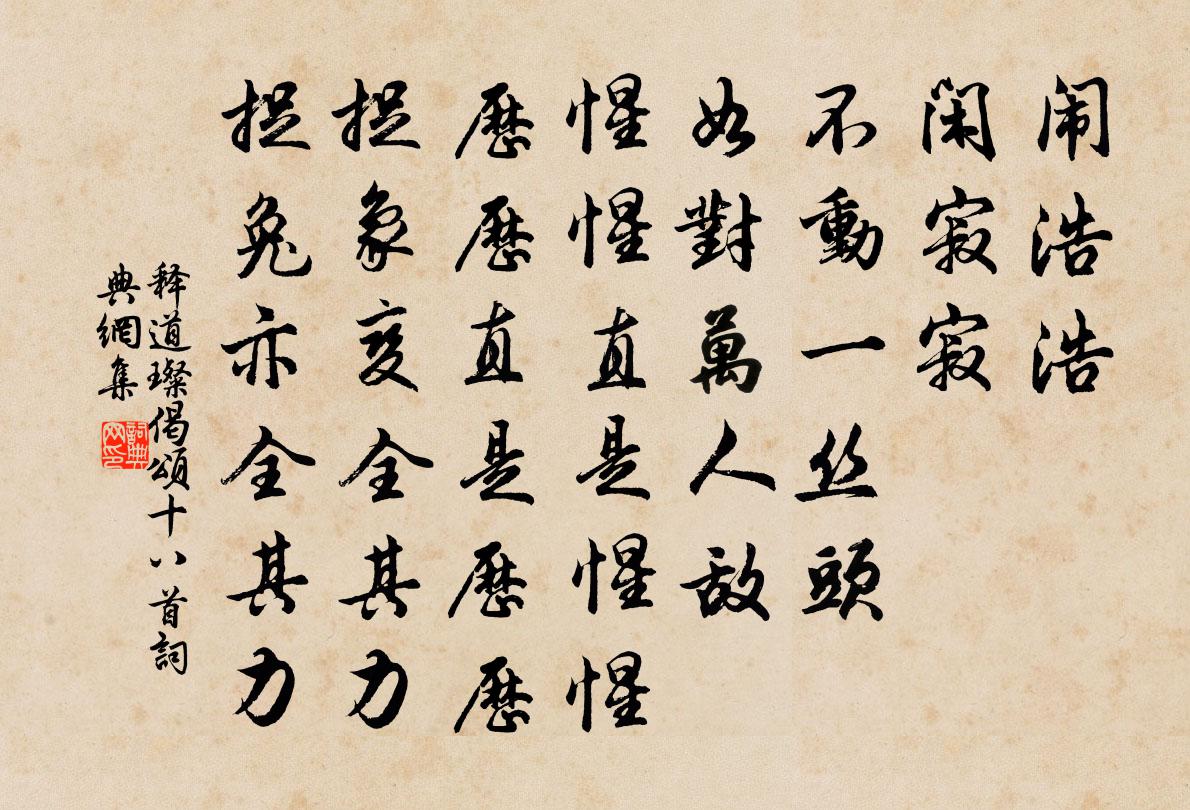 闹浩浩
闲寂寂
不動一丝頭
如對萬人敵
惺惺直是惺惺
歷歷直是歷歷
捉象变全其力
捉兔亦全其力
释道璨偈頌十八首詞
典網集
詞典
网印